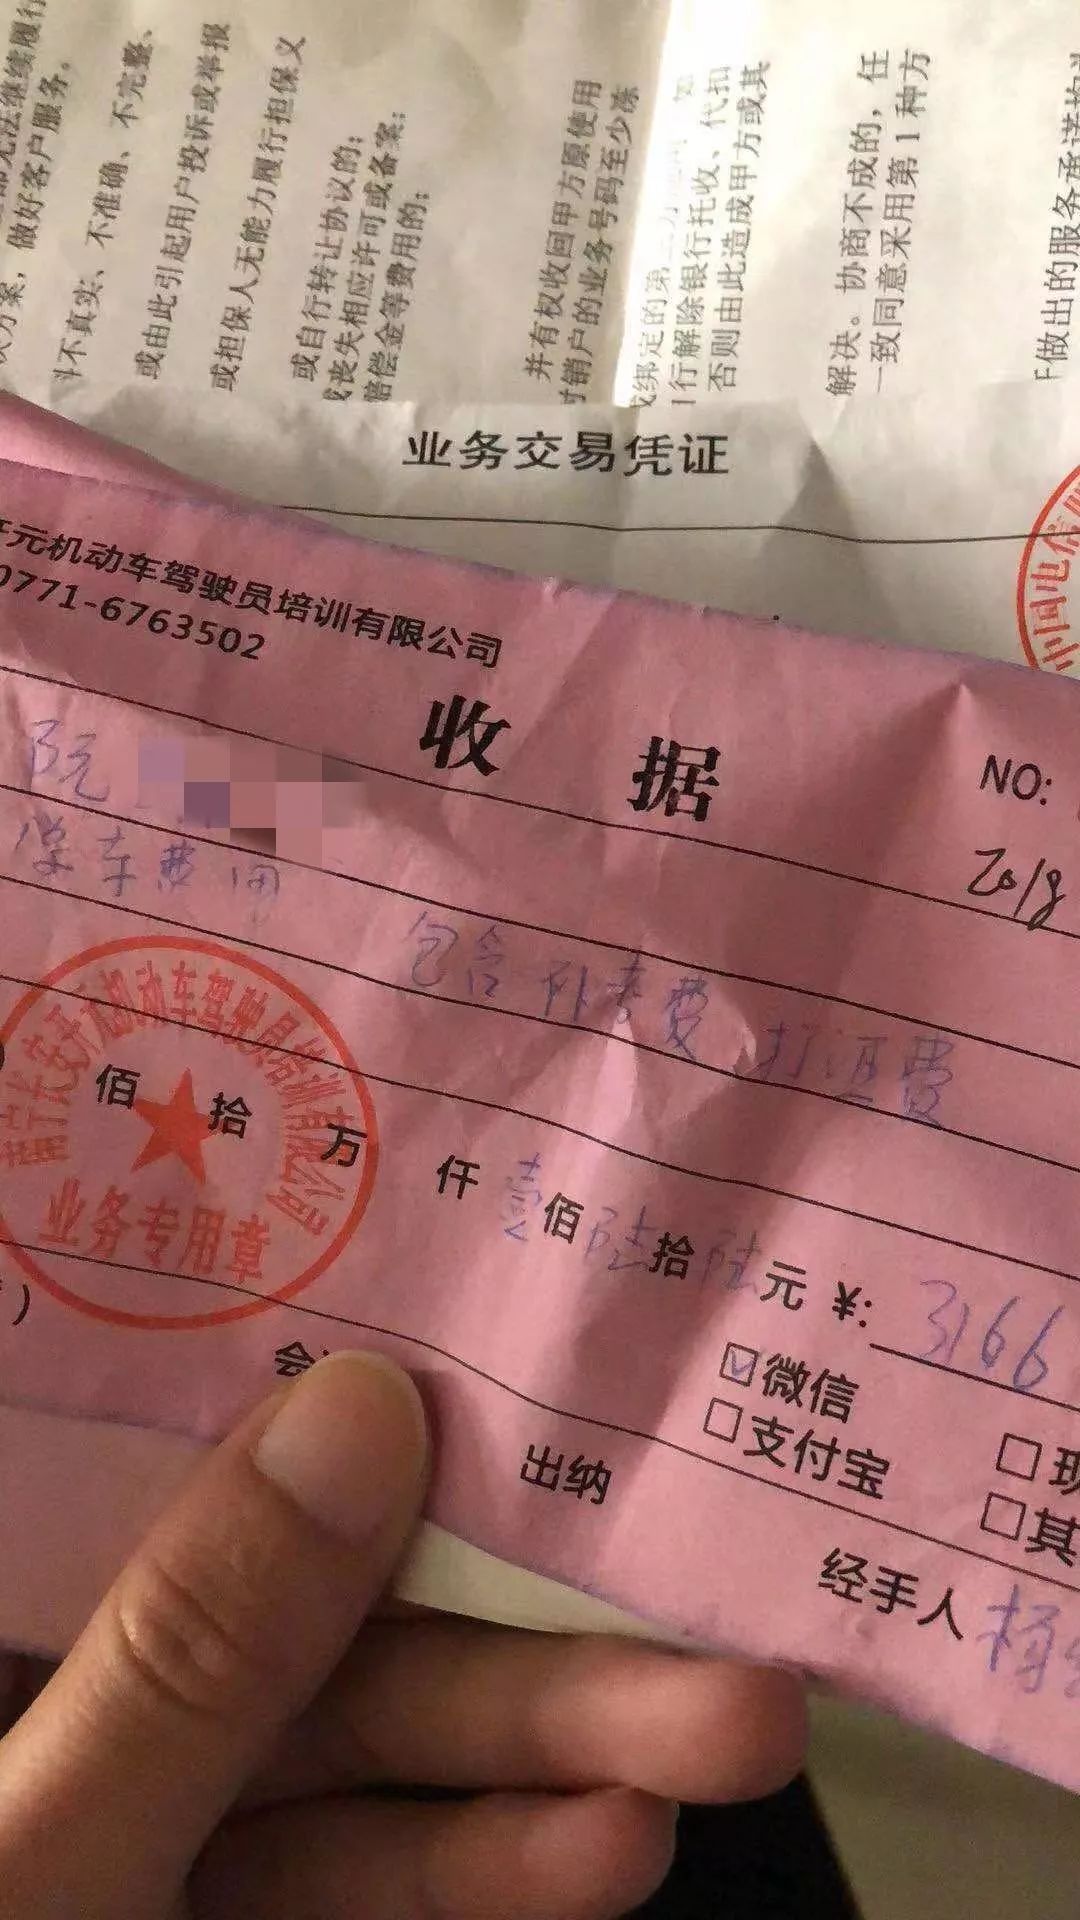 做好客户服务。
不真实、不准确、不完整、
或由此引起用户投诉或举报
或担保人无能力履行担保义
或自行转让协议的；
或丧失相应许可或备案；
赔偿金等费用的；
并有权收回甲方原使用
时销户的业务号码至少冻
绑定的第
行解除银行托收、代扣
否则由此造成甲方或其
解决。协商不成的，任
一致同意采用第1种方
做出的服务承诺
业务交易凭证
中国电信
开元机动车驾驶员培训有限公司
0771-6763502
收 据
NO:
阮
2018
学车费用 包含补考费 打证费
长安开元机动车驾驶员培训有限公司
业务专用章
佰 拾 万 仟 壹佰陆拾陆元 ¥: 3166
微信
支付宝
出纳
经手人 杨